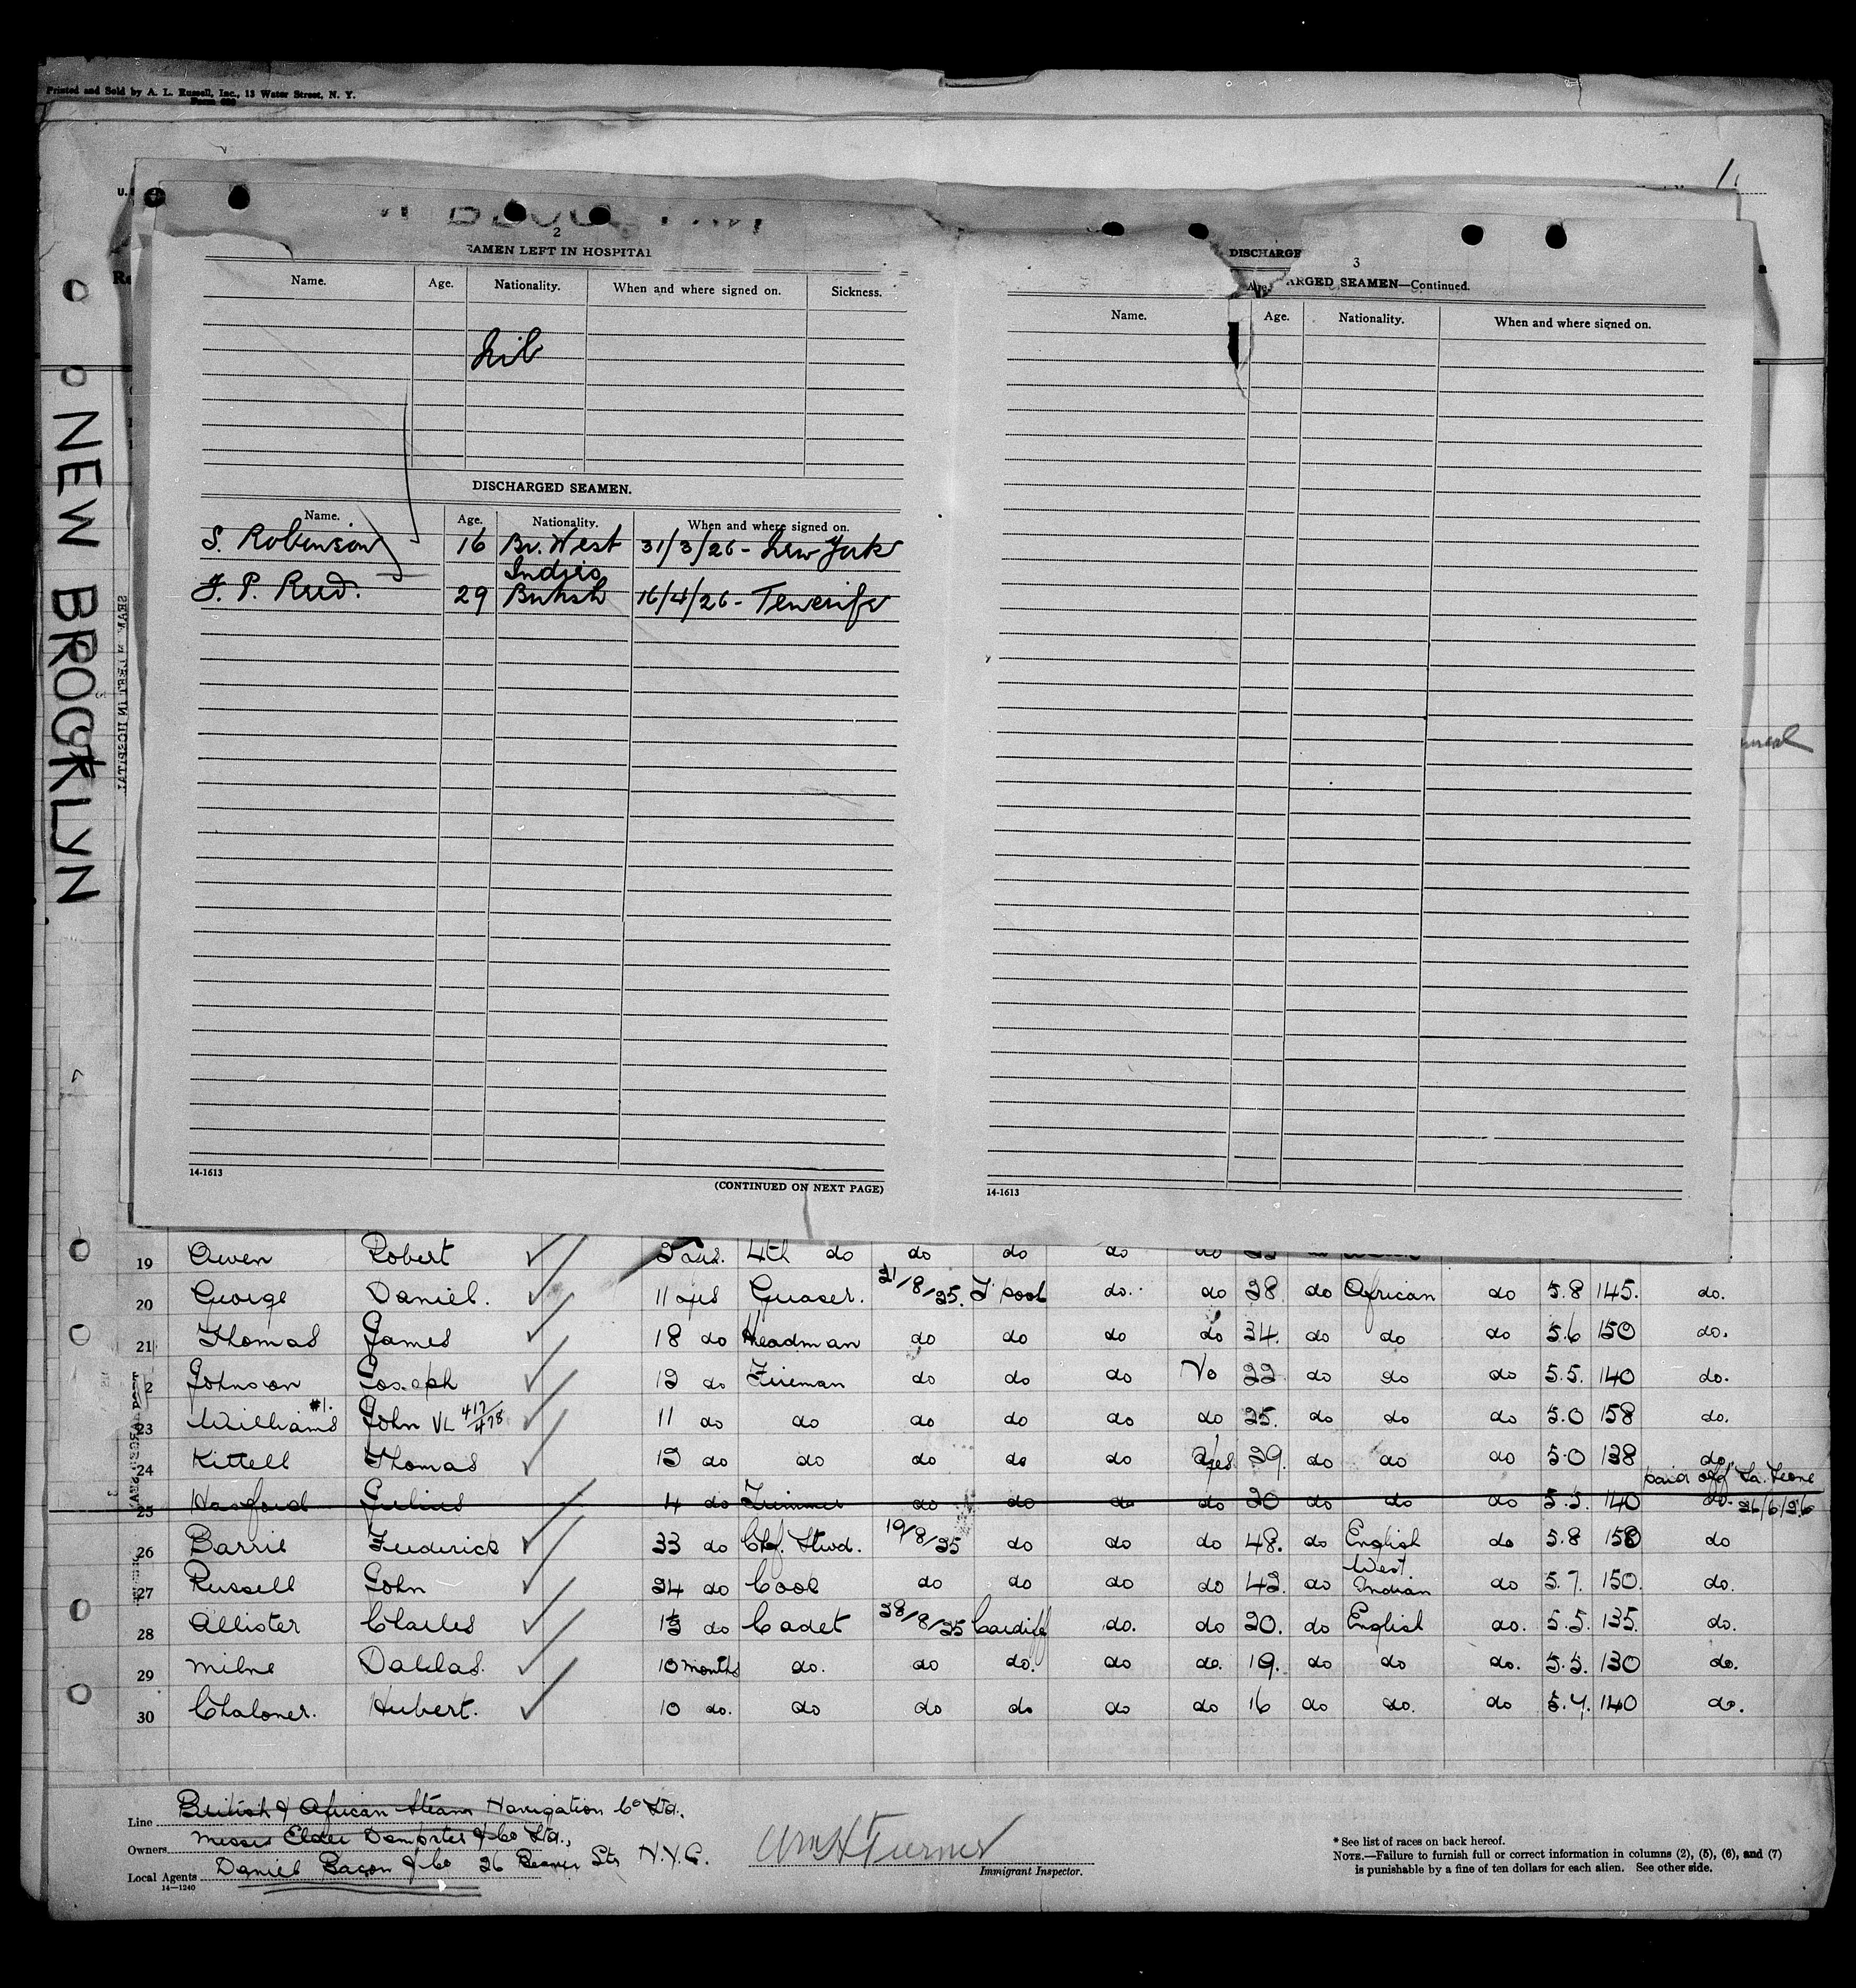 Printed and Sold by A. L. Russell, Inc., 13 Water Street, N. Y.
NEW BROOKLYN
2
SEAMEN LEFT IN HOSPITAL
Name. Age. Nationality. When and where signed on. Sickness.
Nil
DISCHARGED SEAMEN.
Name. Age. Nationality. When and where signed on.
S. Robinson 16 Br. West Indies 31/3/26 - New York
F. P. Reed. 29 British 16/4/26 - Tenerife
14-1613
(CONTINUED ON NEXT PAGE)
DISCHARGE
3
ARGED SEAMEN—Continued.
Name. Age. Nationality. When and where signed on.
14-1613
19 Owen Robert 4th do do do do
20 George Daniel. 11 yes Greaser. 21/8/25. L'pool do. do 28. do African do 5.8 145. do.
21 Thomas James 18 do Headman do do do do 34. do do do 5.6 150 do.
Johnson Joseph 12 do Fireman do do do No 22 do do do 5.5. 140 do.
23 Williams #1. John VL 417/478 11 do do do do do do 25. do do do 5.0 158 do.
24 Kittell Thomas 12 do do do do do yes 29. do do do 5.0 138 do
paid off Sa. Leone
25 Hasford Julius 4 do Trimmer do do do do 20 do do do 5.5. 140 do. 26/6/26
26 Barrie Frederick 33 do Chf. Stwd. 19/8/25 do do do 48. do English do 5.8 150 do
27 Russell John 24 do Cook do do do do 42. do West Indian do 5.7. 150. do.
28 Allister Charles 1½ do Cadet 28/8/25 Cardiff do. do 20. do English do. 5.5. 135. do.
29 Milne Dallas. 10 months do. do do. do do. 19. do do do. 5.5. 130 do.
30 Chaloner. Hubert. 10 do. do do do do do 16 do do. do 5.4. 140 do.
Line British & African Steam Navigation Co Ltd.
Owners Messrs Elder Dempster & Co Ltd.,
Local Agents Daniel Bacon & Co 26 Beaver Str N.Y.C.
14—1240
Wm H Turner
Immigrant Inspector.
* See list of races on back hereof.
NOTE.—Failure to furnish full or correct information in columns (2), (5), (6), and (7)
is punishable by a fine of ten dollars for each alien. See other side.